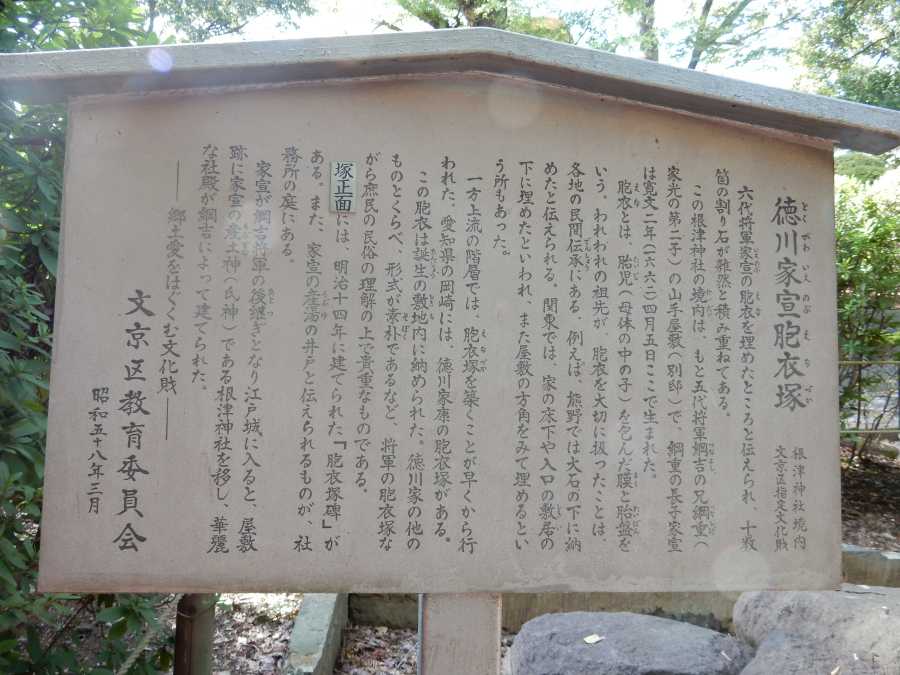 徳川家宣胞衣塚
とくがわいえのぶえなづか
根津神社境内
文京区指定文化財
六代将軍家宣の胞衣を埋めたところと伝えられ、十数
箇の割り石が雑然と積み重ねてある。
この根津神社の境内は、もと五代将軍綱吉の兄綱重(
家光の第二子)の山手屋敷(別邸)で、綱重の長子家宣
は寛文二年(一六六二)四月五日ここで生まれた。
胞衣とは、胎児(母体の中の子)を包んだ膜と胎盤を
いう。われわれの祖先が、胞衣を大切に扱ったことは、
各地の民間伝承にある。例えば、熊野では大石の下に納
めたと伝えられる。関東では、家の床下や入口の敷居の
下に埋めたといわれ、また屋敷の方角をみて埋めるとい
う所もあった。
一方上流の階層では、胞衣塚を築くことが早くから行
われた。愛知県の岡崎には、徳川家康の胞衣塚がある。
この胞衣は誕生の敷地内に納められた。徳川家の他の
ものとくらべ、形式が素朴であるなど、将軍の胞衣塚な
がら庶民の民俗の理解の上で貴重なものである。
塚正面には、明治十四年に建てられた「胞衣塚碑」が
ある。また、家宣の産湯の井戸と伝えられるものが、社
務所の庭にある。
家宣が綱吉将軍の後継ぎとなり江戸城に入ると、屋敷
跡に家宣の産土神(氏神)である根津神社を移し、華麗
な社殿が綱吉によって建てられた。
―郷土愛をはぐくむ文化財―
文京区教育委員会
昭和五十八年三月